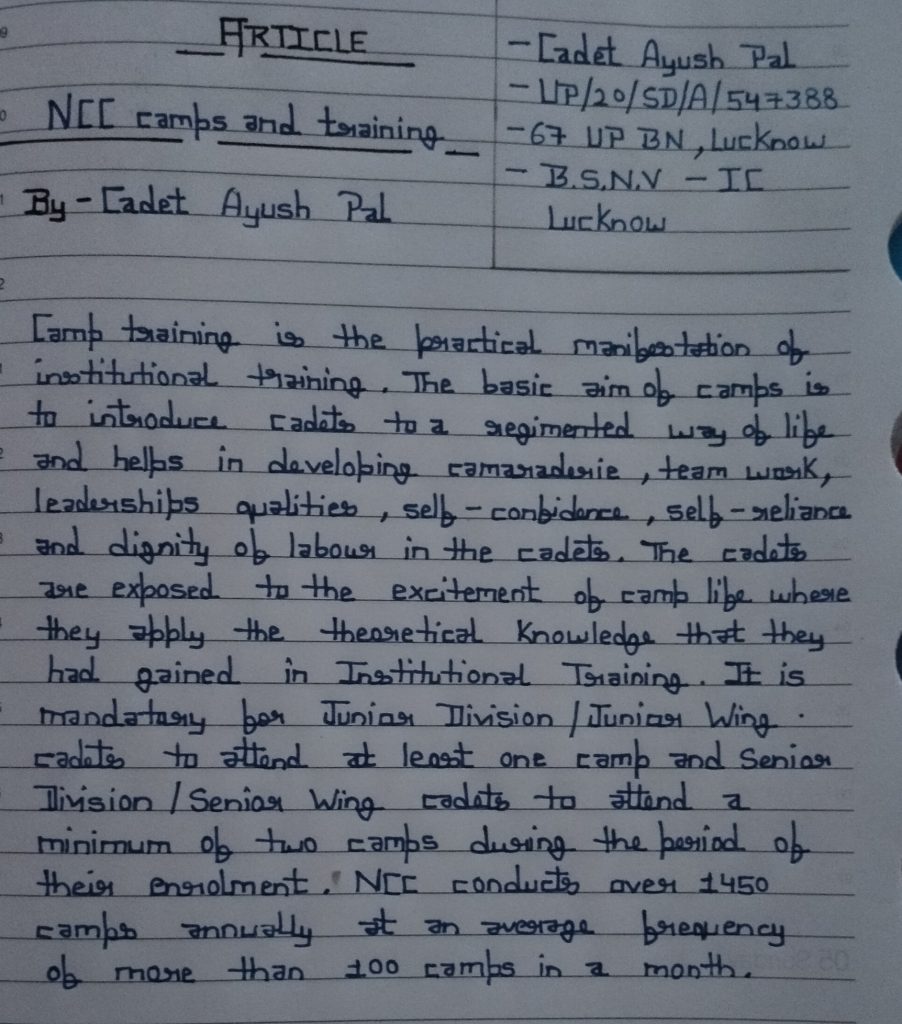 ARTICLE
NCC camps and training
By - Cadet Ayush Pal
- Cadet Ayush Pal
- UP/20/SD/A/547388
- 67 UP BN, Lucknow
- B.S.N.V - IC
Lucknow
Camp training is the practical manifestation of
institutional training. The basic aim of camps is
to introduce cadets to a regimented way of life
and helps in developing camaraderie, team work,
leaderships qualities, self-confidence, self-reliance
and dignity of labour in the cadets. The cadets
are exposed to the excitement of camp life where
they apply the theoretical Knowledge that they
had gained in Institutional Training. It is
mandatary for Junior Division / Junior Wing.
cadets to attend at least one camp and Senior
Division / Senior Wing cadets to attend a
minimum of two camps during the period of
their enrolment. NCC conducts over 1450
camps annually at an average frequency
of more than 100 camps in a month.